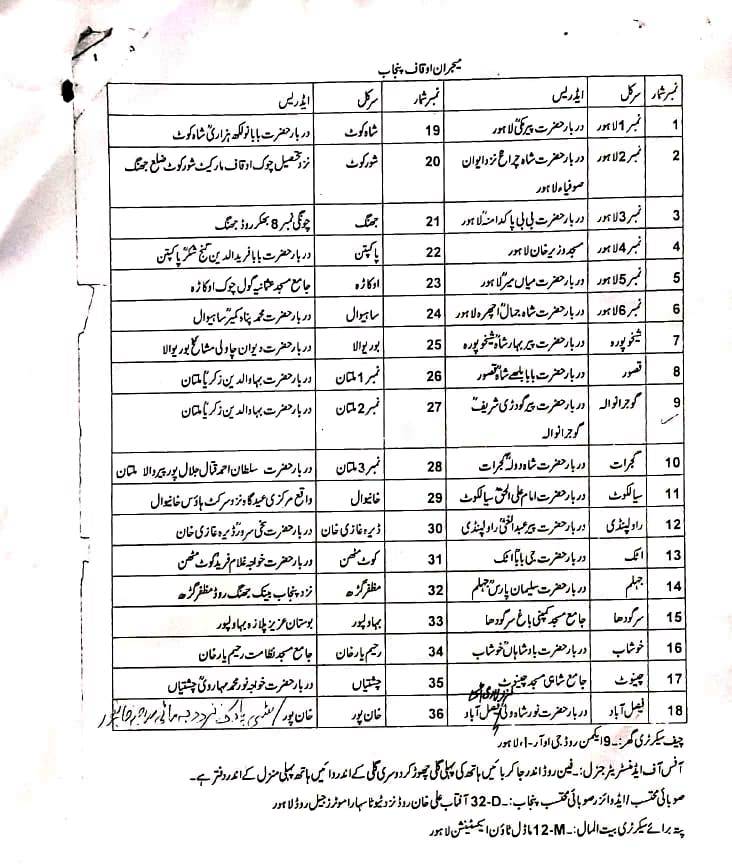 میجران اوقاف پنجاب
نمبر شمار سرکل ایڈریس نمبر شمار سرکل ایڈریس
1 نمبر 1 لاہور دربار حضرت پیر مکیؒ لاہور 19 شاہ کوٹ دربار حضرت بابا نولکھ ہزاریؒ شاہ کوٹ
2 نمبر 2 لاہور دربار حضرت شاہ چراغؒ نزد ایوان 20 شورکوٹ نزد تحصیل چوک اوقاف مارکیٹ شورکوٹ ضلع جھنگ
صوفیاء لاہور
3 نمبر 3 لاہور دربار حضرت بی بی پاکدامنہؒ لاہور 21 جھنگ چونگی نمبر 8 بھکر روڈ جھنگ
4 نمبر 4 لاہور مسجد وزیر خان لاہور 22 پاکپتن دربار حضرت بابا فرید الدین گنج شکرؒ پاکپتن
5 نمبر 5 لاہور دربار حضرت میاں میرؒ لاہور 23 اوکاڑہ جامع مسجد عثمانیہ گول چوک اوکاڑہ
6 نمبر 6 لاہور دربار حضرت شاہ جمالؒ اچھرہ لاہور 24 ساہیوال دربار حضرت محمد پناہ کمیرؒ ساہیوال
7 شیخوپورہ دربار حضرت پیر بہار شاہؒ شیخوپورہ 25 بوریوالا دربار حضرت دیوان چاولی مشائخؒ بوریوالا
8 قصور دربار حضرت بابا بلھے شاہؒ قصور 26 نمبر 1 ملتان دربار حضرت بہاوالدین زکریاؒ ملتان
9 گوجرانوالہ دربار حضرت پیر گودڑی شریفؒ 27 نمبر 2 ملتان دربار حضرت بہاوالدین زکریاؒ ملتان
گوجرانوالہ
10 گجرات دربار حضرت شاہ دولہؒ گجرات 28 نمبر 3 ملتان دربار حضرت سلطان احمد قتالؒ جلال پور پیر والا ملتان
11 سیالکوٹ دربار حضرت امام علی الحقؒ سیالکوٹ 29 خانیوال واقع مرکزی عیدگاہ نزد سرکٹ ہاؤس خانیوال
12 راولپنڈی دربار حضرت پیر عبدالغنیؒ راولپنڈی 30 ڈیرہ غازی خان دربار حضرت سخی سرورؒ ڈیرہ غازی خان
13 اٹک دربار حضرت جی باباؒ اٹک 31 کوٹ مٹھن دربار حضرت خواجہ غلام فریدؒ کوٹ مٹھن
14 جہلم دربار حضرت سلیمان پارسؒ جہلم 32 مظفر گڑھ نزد پنجاب بینک جھنگ روڈ مظفر گڑھ
15 سرگودھا جامع مسجد کمپنی باغ سرگودھا 33 بہاولپور بوستان عزیز پلازہ بہاولپور
16 خوشاب دربار حضرت بادشاہاںؒ خوشاب 34 رحیم یار خان جامع مسجد نظامت رحیم یار خان
17 چنیوٹ جامع شاہی مسجد چنیوٹ 35 چشتیاں دربار حضرت خواجہ نور محمد مہارویؒ چشتیاں
18 فیصل آباد دربار حضرت نور شاہ ولیؒ فیصل آباد 36 خان پور خان پور / سٹی پارک نزد
چیف سیکرٹری گھر:۔ 9 ایکمن روڈ جی او آر-۱، لاہور
آفس آف ایڈمنسٹریٹر جنرل:۔ فین روڈ اندر جا کر بائیں ہاتھ کی پہلی گلی چھوڑ کر دوسری گلی کے اندر دائیں ہاتھ پہلی منزل کے اندر دفتر ہے۔
صوبائی محتسب / ایڈوائزر صوبائی محتسب پنجاب:۔ 32-D آفتاب علی خان روڈ نزد ٹیوٹا سہارا موٹرز جیل روڈ لاہور
پتہ برائے سیکرٹری بیت المال:۔ 12-M ماڈل ٹاؤن ایکسٹینشن لاہور